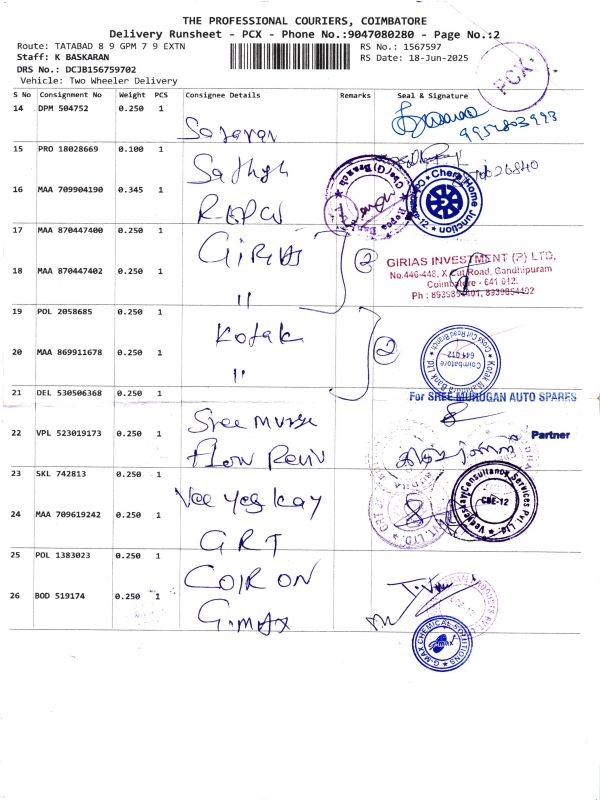 THE PROFESSIONAL COURIERS, COIMBATORE
Delivery Runsheet - PCX - Phone No.:9047080280 - Page No.:2
Route: TATABAD 8 9 GPM 7 9 EXTN
RS No.: 1567597
Staff: K BASKARAN
RS Date: 18-Jun-2025
DRS No.: DCJB156759702
Vehicle: Two Wheeler Delivery
PCX
S No Consignment No Weight PCS Consignee Details Remarks Seal & Signature
14 DPM 504752 0.250 1
Saravan
15 PRO 18028669 0.100 1
Sathysh
16 MAA 709904190 0.345 1
REPCO
Chera Home Junction
17 MAA 870447400 0.250 1
GiRiAS
2
GIRIAS INVESTMENT (P) LTD.
No.446-448, X Cut Road, Gandhipuram
Coimbatore - 641 012.
Ph : 8939854401, 8939854402
18 MAA 870447402 0.250 1
"
19 POL 2058685 0.250 1
Kotak
2
Kotak Mahindra Bank
Cross Cut Road Branch
Coimbatore
641 012
20 MAA 869911678 0.250 1
"
21 DEL 530506368 0.250 1
For SREE MURUGAN AUTO SPARES
Sree Muruga
Partner
22 VPL 523019173 0.250 1
Flow
23 SKL 742813 0.250 1
Vee Yes Kay
Veeyeskay Consultancy Services Pvt. Ltd.
CBE-12
24 MAA 709619242 0.250 1
GRT
25 POL 1383023 0.250 1
COIRON
26 BOD 519174 0.250 1
G.MAX
G-MAX CHEMICAL SOLUTIONS
G-MAX